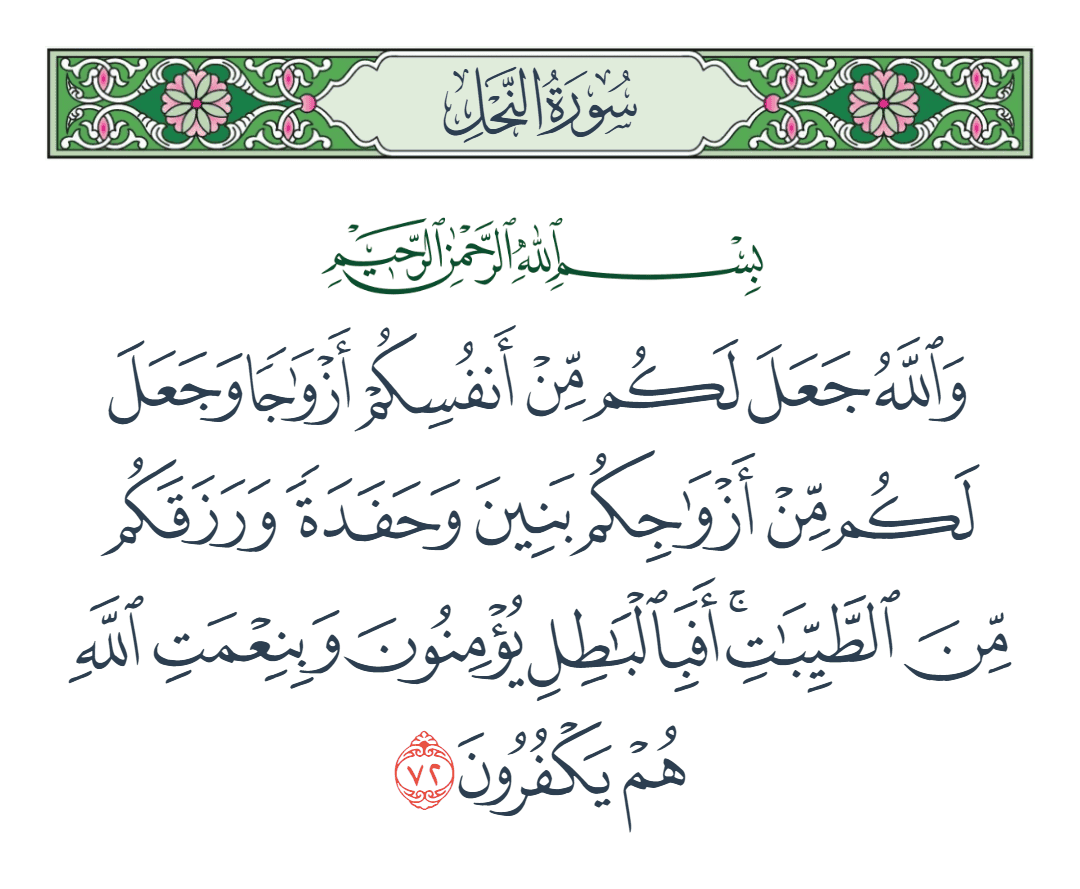 سُورَةُ النَّحْلِ
بِسْمِ ٱللَّهِ ٱلرَّحْمَٰنِ ٱلرَّحِيمِ
وَٱللَّهُ جَعَلَ لَكُم مِّنْ أَنفُسِكُمْ أَزْوَٰجًا وَجَعَلَ
لَكُم مِّنْ أَزْوَٰجِكُم بَنِينَ وَحَفَدَةً وَرَزَقَكُم
مِّنَ ٱلطَّيِّبَٰتِ ۚ أَفَبِٱلْبَٰطِلِ يُؤْمِنُونَ وَبِنِعْمَتِ ٱللَّهِ
هُمْ يَكْفُرُونَ ٧٢